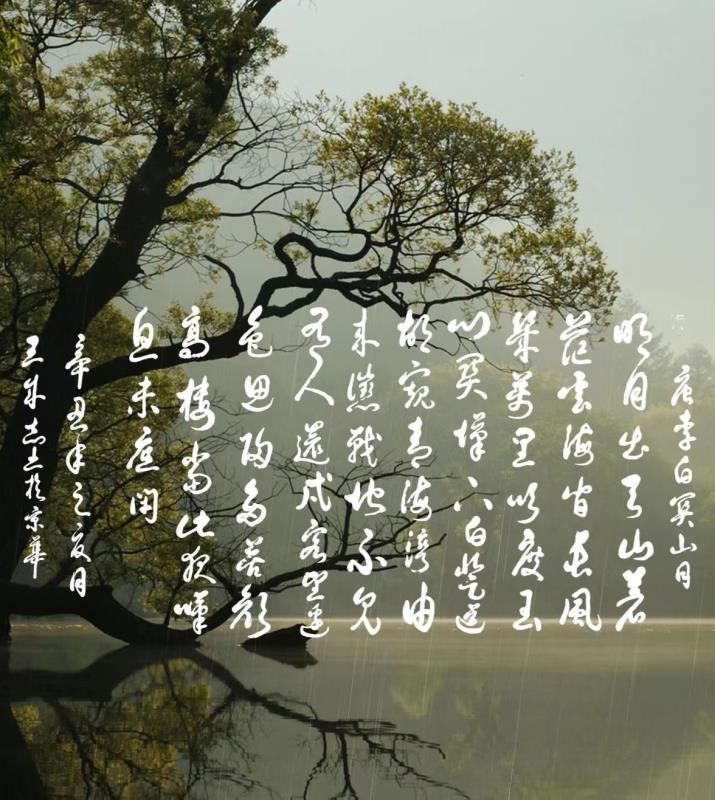 唐李白關山月
明月出天山蒼
茫雲海間長風
幾萬里吹度玉
門關漢下白登道
胡窺青海灣由
來征戰地不見
有人還戍客望邊
色思歸多苦顏
高樓當此夜嘆
息未應閑
辛丑年之夏月
王志於京華